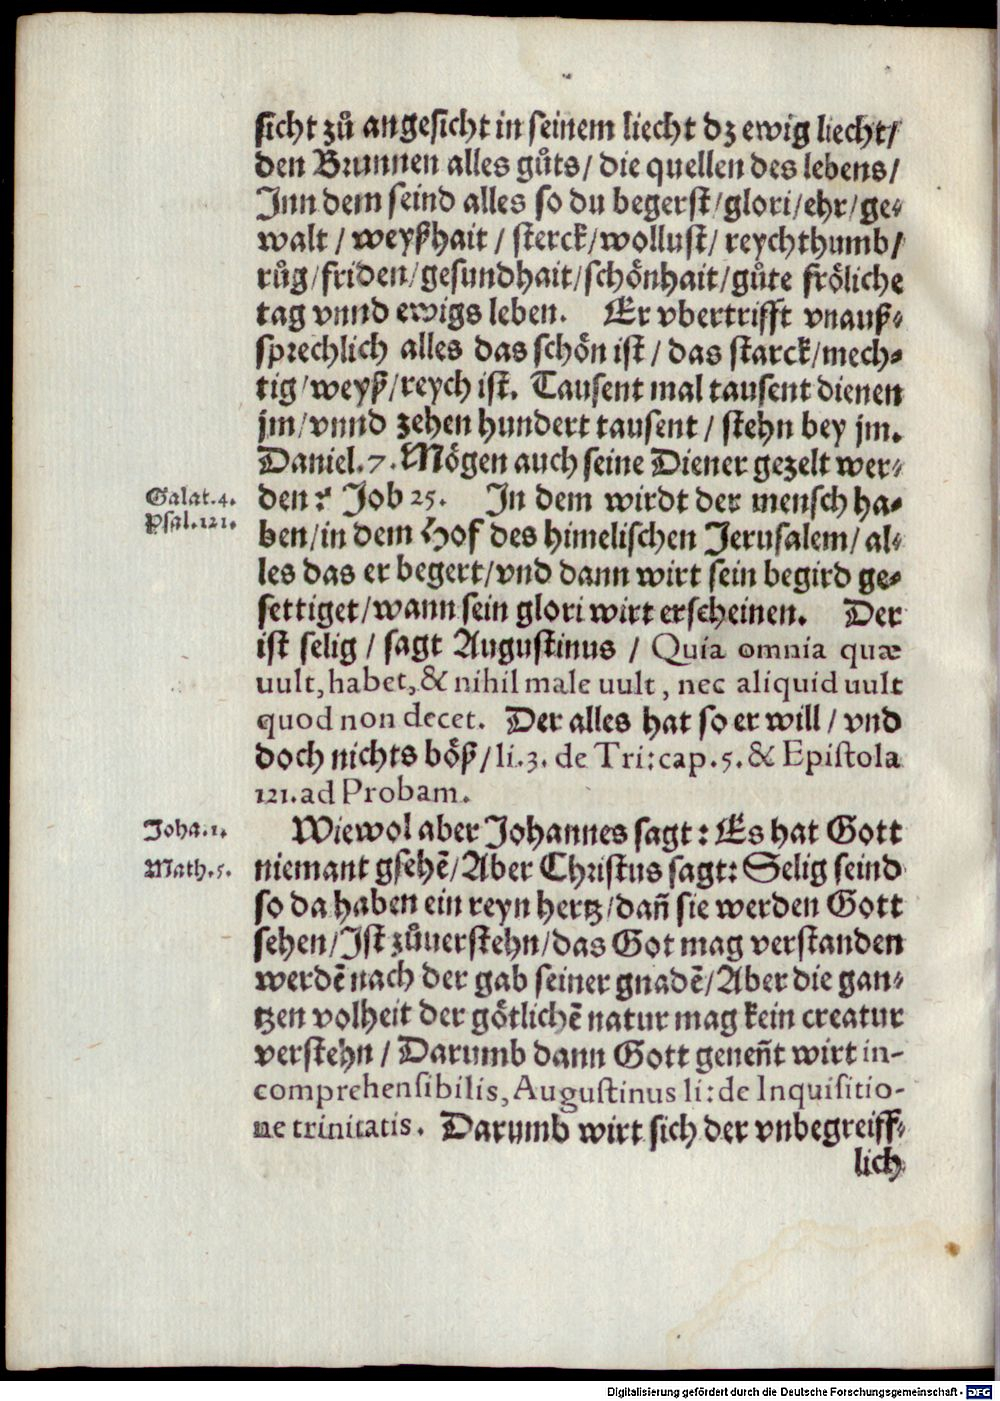 sicht zů angesicht in seinem liecht dz ewig liecht/
den Brunnen alles gůts/ die quellen des lebens/
Inn dem seind alles so du begerst/glori/ehr/ge-
walt / weyßhait / sterck/wollust/ reychthumb/
růg/friden/gesundhait/schönhait/gůte fröliche
tag vnnd ewigs leben. Er vbertrifft vnauß-
sprechlich alles das schön ist / das starck/mech-
tig/weyß/reych ist. Tausent mal tausent dienen
jm/vnnd zehen hundert tausent / stehn bey jm.
Daniel.7. Mögen auch seine Diener gezelt wer-
Galat.4.
Psal.121.
den? Job 25. In dem wirdt der mensch ha-
ben/in dem Hof des himelischen Jerusalem/ al-
les das er begert/vnd dann wirt sein begird ge-
settiget/wann sein glori wirt erscheinen. Der
ist selig / sagt Augustinus / Quia omnia quæ
uult, habet, & nihil male uult, nec aliquid uult
quod non decet. Der alles hat so er will / vnd
doch nichts böß/li.3. de Tri:cap.5. & Epistola
121.ad Probam.
Joha.1.
Wiewol aber Johannes sagt: Es hat Gott
Math.5.
niemant gsehē/Aber Christus sagt: Selig seind
so da haben ein reyn hertz/dañ sie werden Gott
sehen/Ist zůuerstehn/das Got mag verstanden
werdē nach der gab seiner gnadē/Aber die gan-
tzen volheit der götlichē natur mag kein creatur
verstehn / Darumb dann Gott geneñt wirt in-
comprehensibilis, Augustinus li: de Inquisitio-
ne trinitatis. Darumb wirt sich der vnbegreiff-
lich
Digitalisierung gefördert durch die Deutsche Forschungsgemeinschaft - DFG